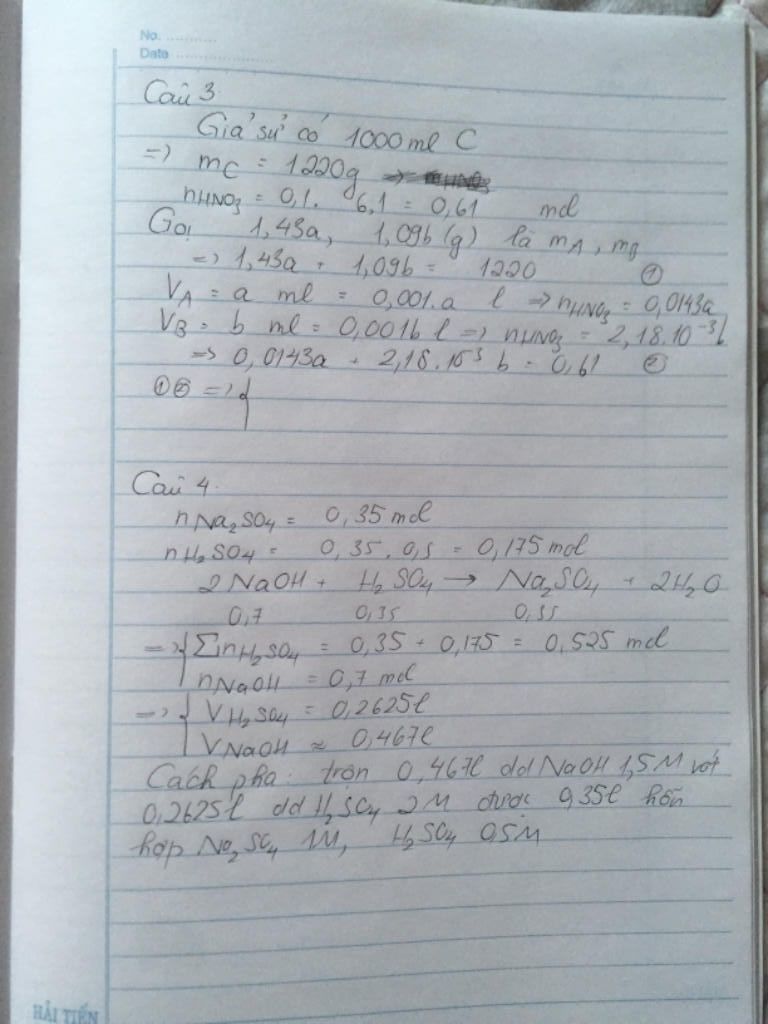 No. ...........
Date ......................
Câu 3
Giả sử có 1000 ml C
=> mC = 1220g
nHNO3 = 0,1. 6,1 = 0,61 mol
Gọi 1,43a, 1,09b (g) là mA, mB
=> 1,43a + 1,09b = 1220 ①
VA = a ml = 0,001.a l => nHNO3 = 0,0143a
VB = b ml = 0,001b l => nHNO3 = 2,18.10⁻³b
=> 0,0143a + 2,18.10⁻³ b = 0,61 ②
①② => {
Câu 4.
nNa2SO4 = 0,35 mol
nH2SO4 = 0,35 . 0,5 = 0,175 mol
2NaOH + H2SO4 → Na2SO4 + 2H2O
0,7 0,35 0,35
=> { ΣnH2SO4 = 0,35 + 0,175 = 0,525 mol
nNaOH = 0,7 mol
=> { VH2SO4 = 0,2625l
VNaOH ≈ 0,467l
Cách pha: trộn 0,467l dd NaOH 1,5M với
0,2625l dd H2SO4 2M được 0,35l hỗn
hợp Na2SO4 1M, H2SO4 0,5M
HẢI TIẾN